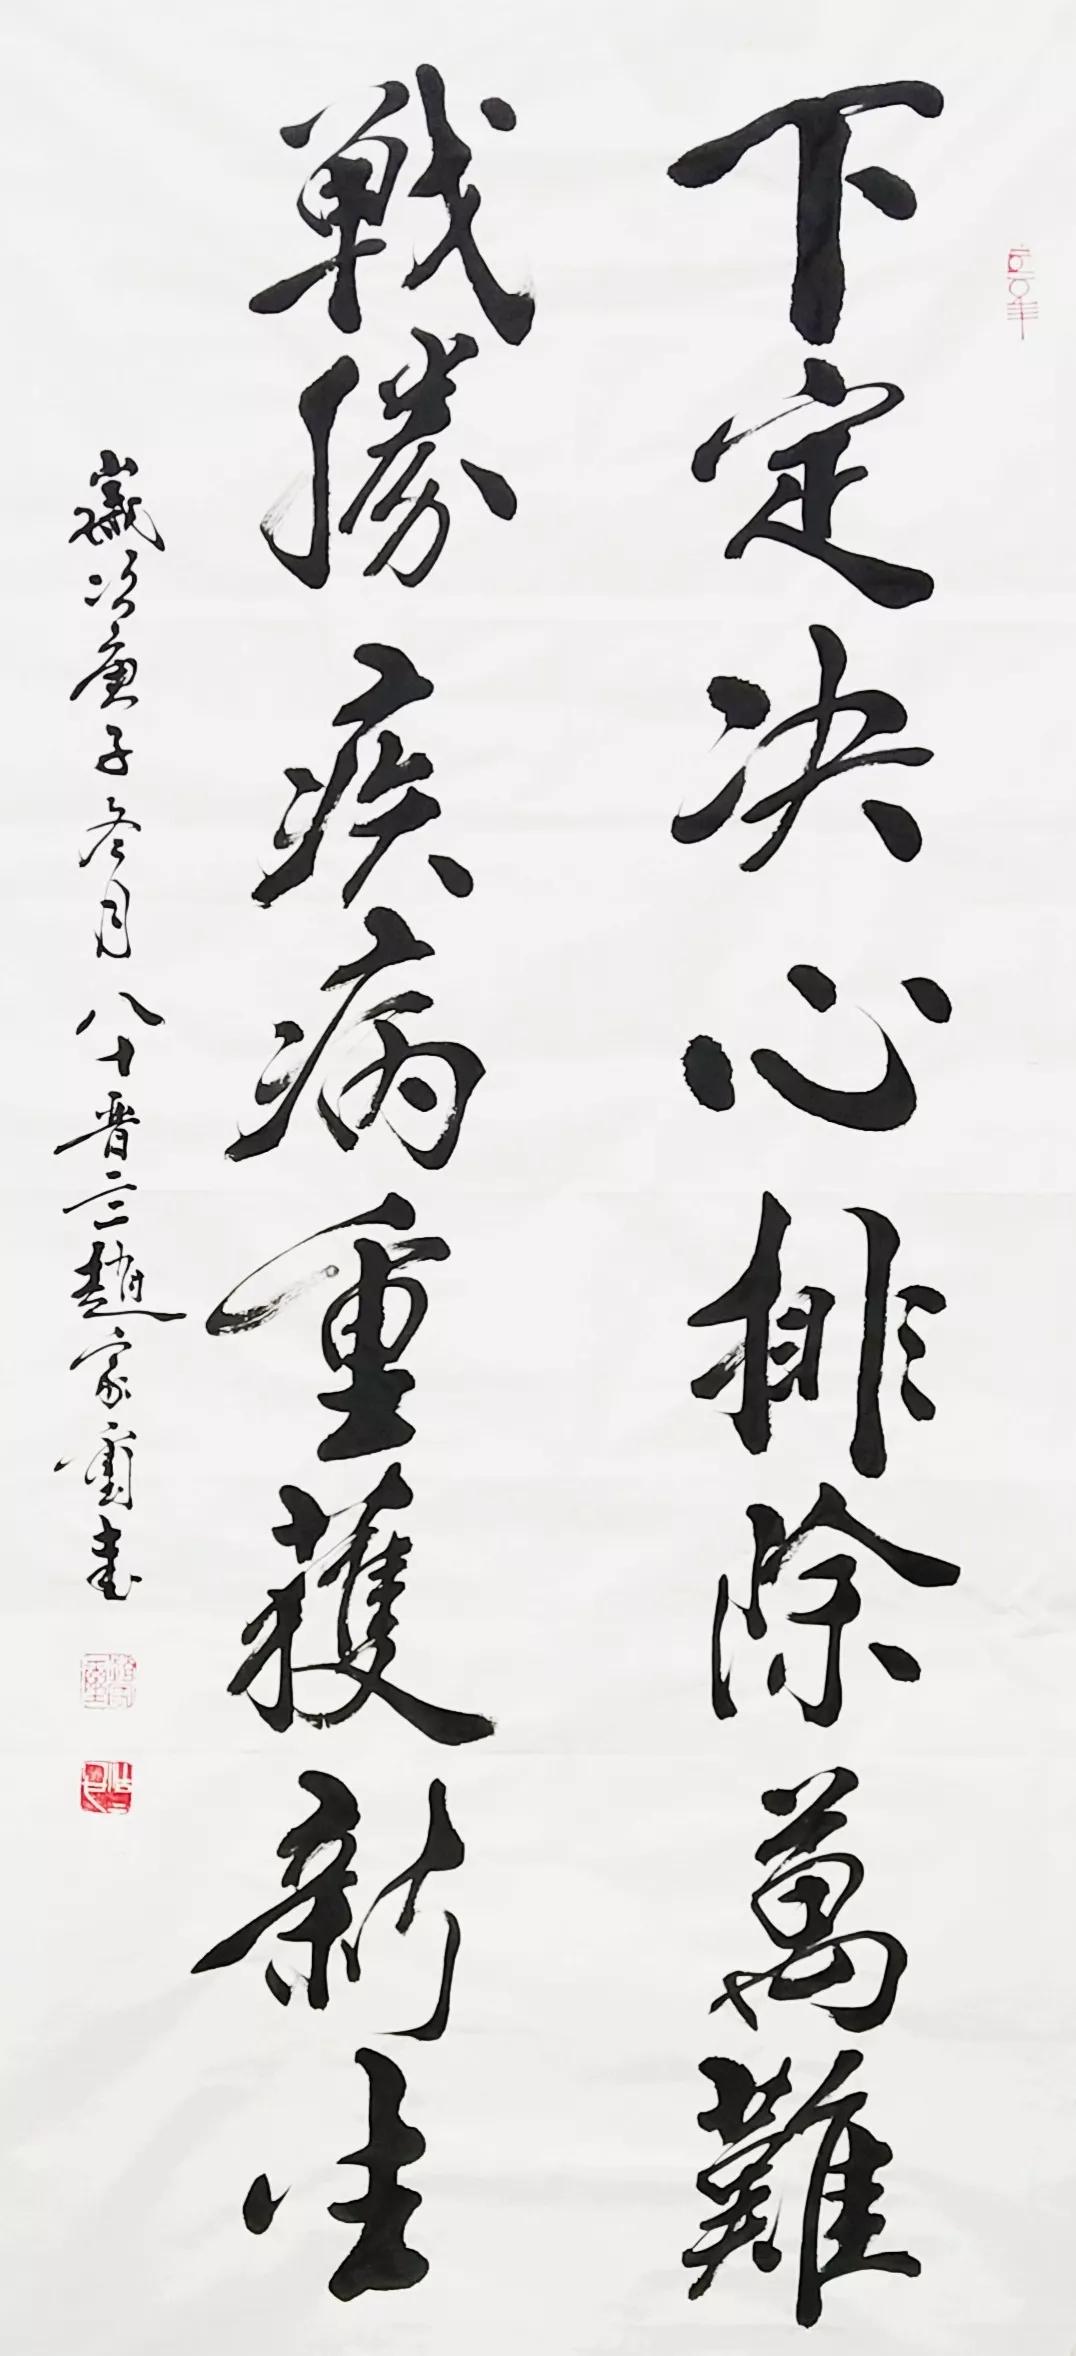 下定决心排除萬難
戰勝疾病重獲新生
歲次庚子冬月八十晋三趙家書